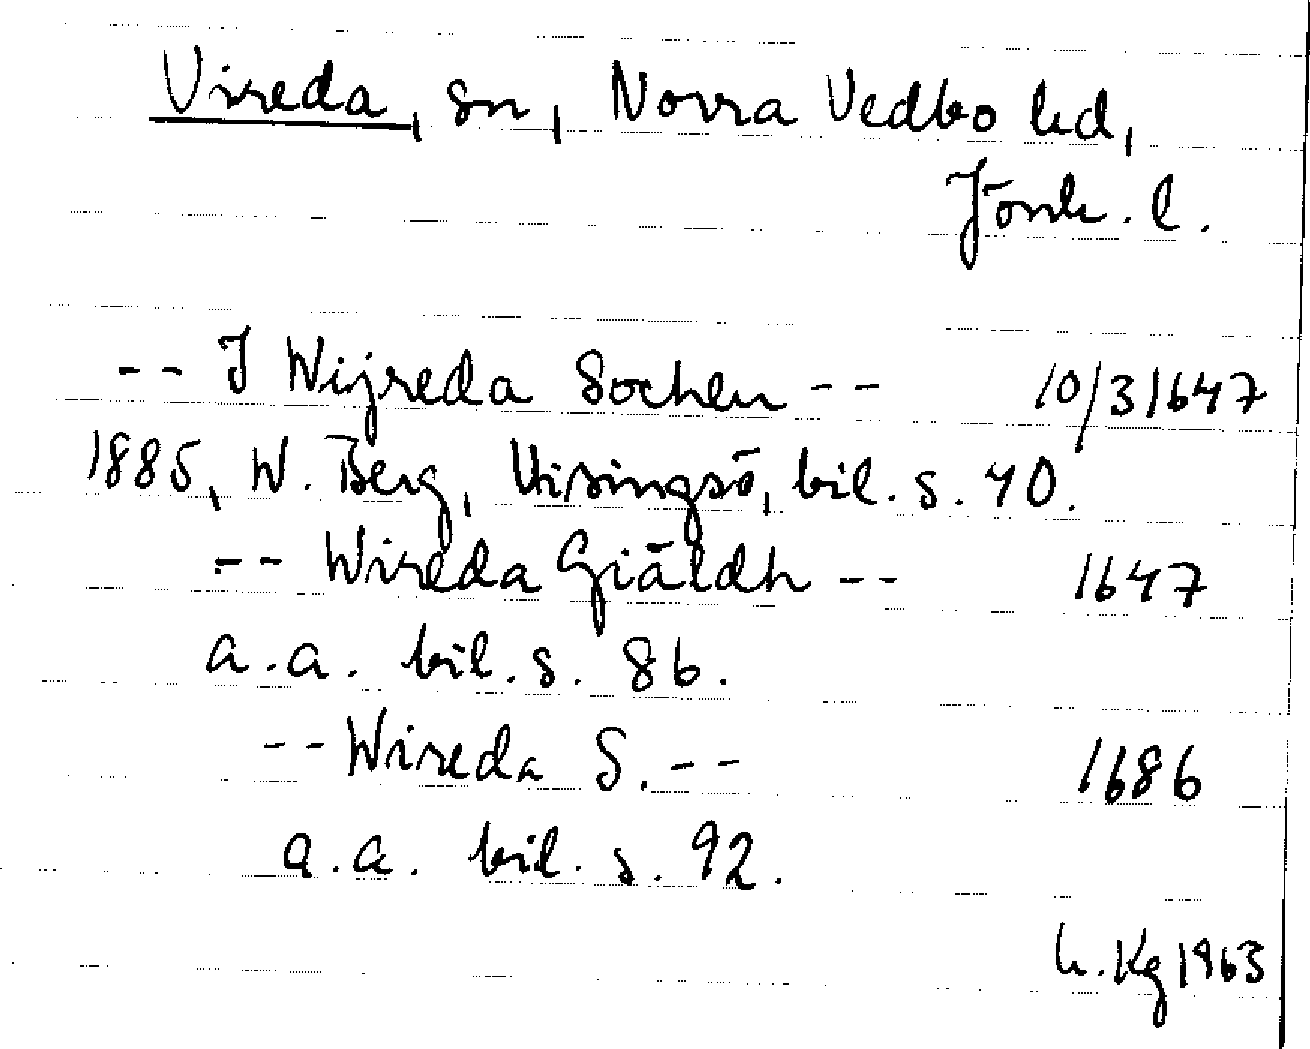 Vireda, sn, Norra Vedbo hd,
Jönk. l.
-- I Wijreda Sochen -- 10/3 1647
1885, W. Berg, Visingsö, bil. s. 40.
-- Wireda Giäldh -- 1647
a.a. bil. s. 86.
-- Wireda S. -- 1686
a.a. bil. s. 92.
h. Kg 1963